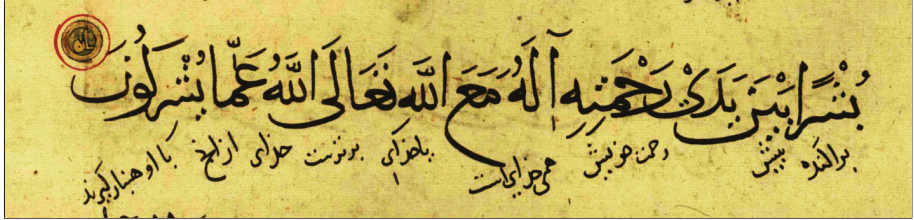 بُشْرًا بَيْنَ يَدَىْ رَحْمَتِهِ آلَهٌ مَعَ اللّهِ تَعَالَى اللّهُ عَمَّا يُشْرِكُونَ
براكنده پیش رحمت خویش همی خدای است با خدای برترست خدای از انچ با او هنباز گیرند